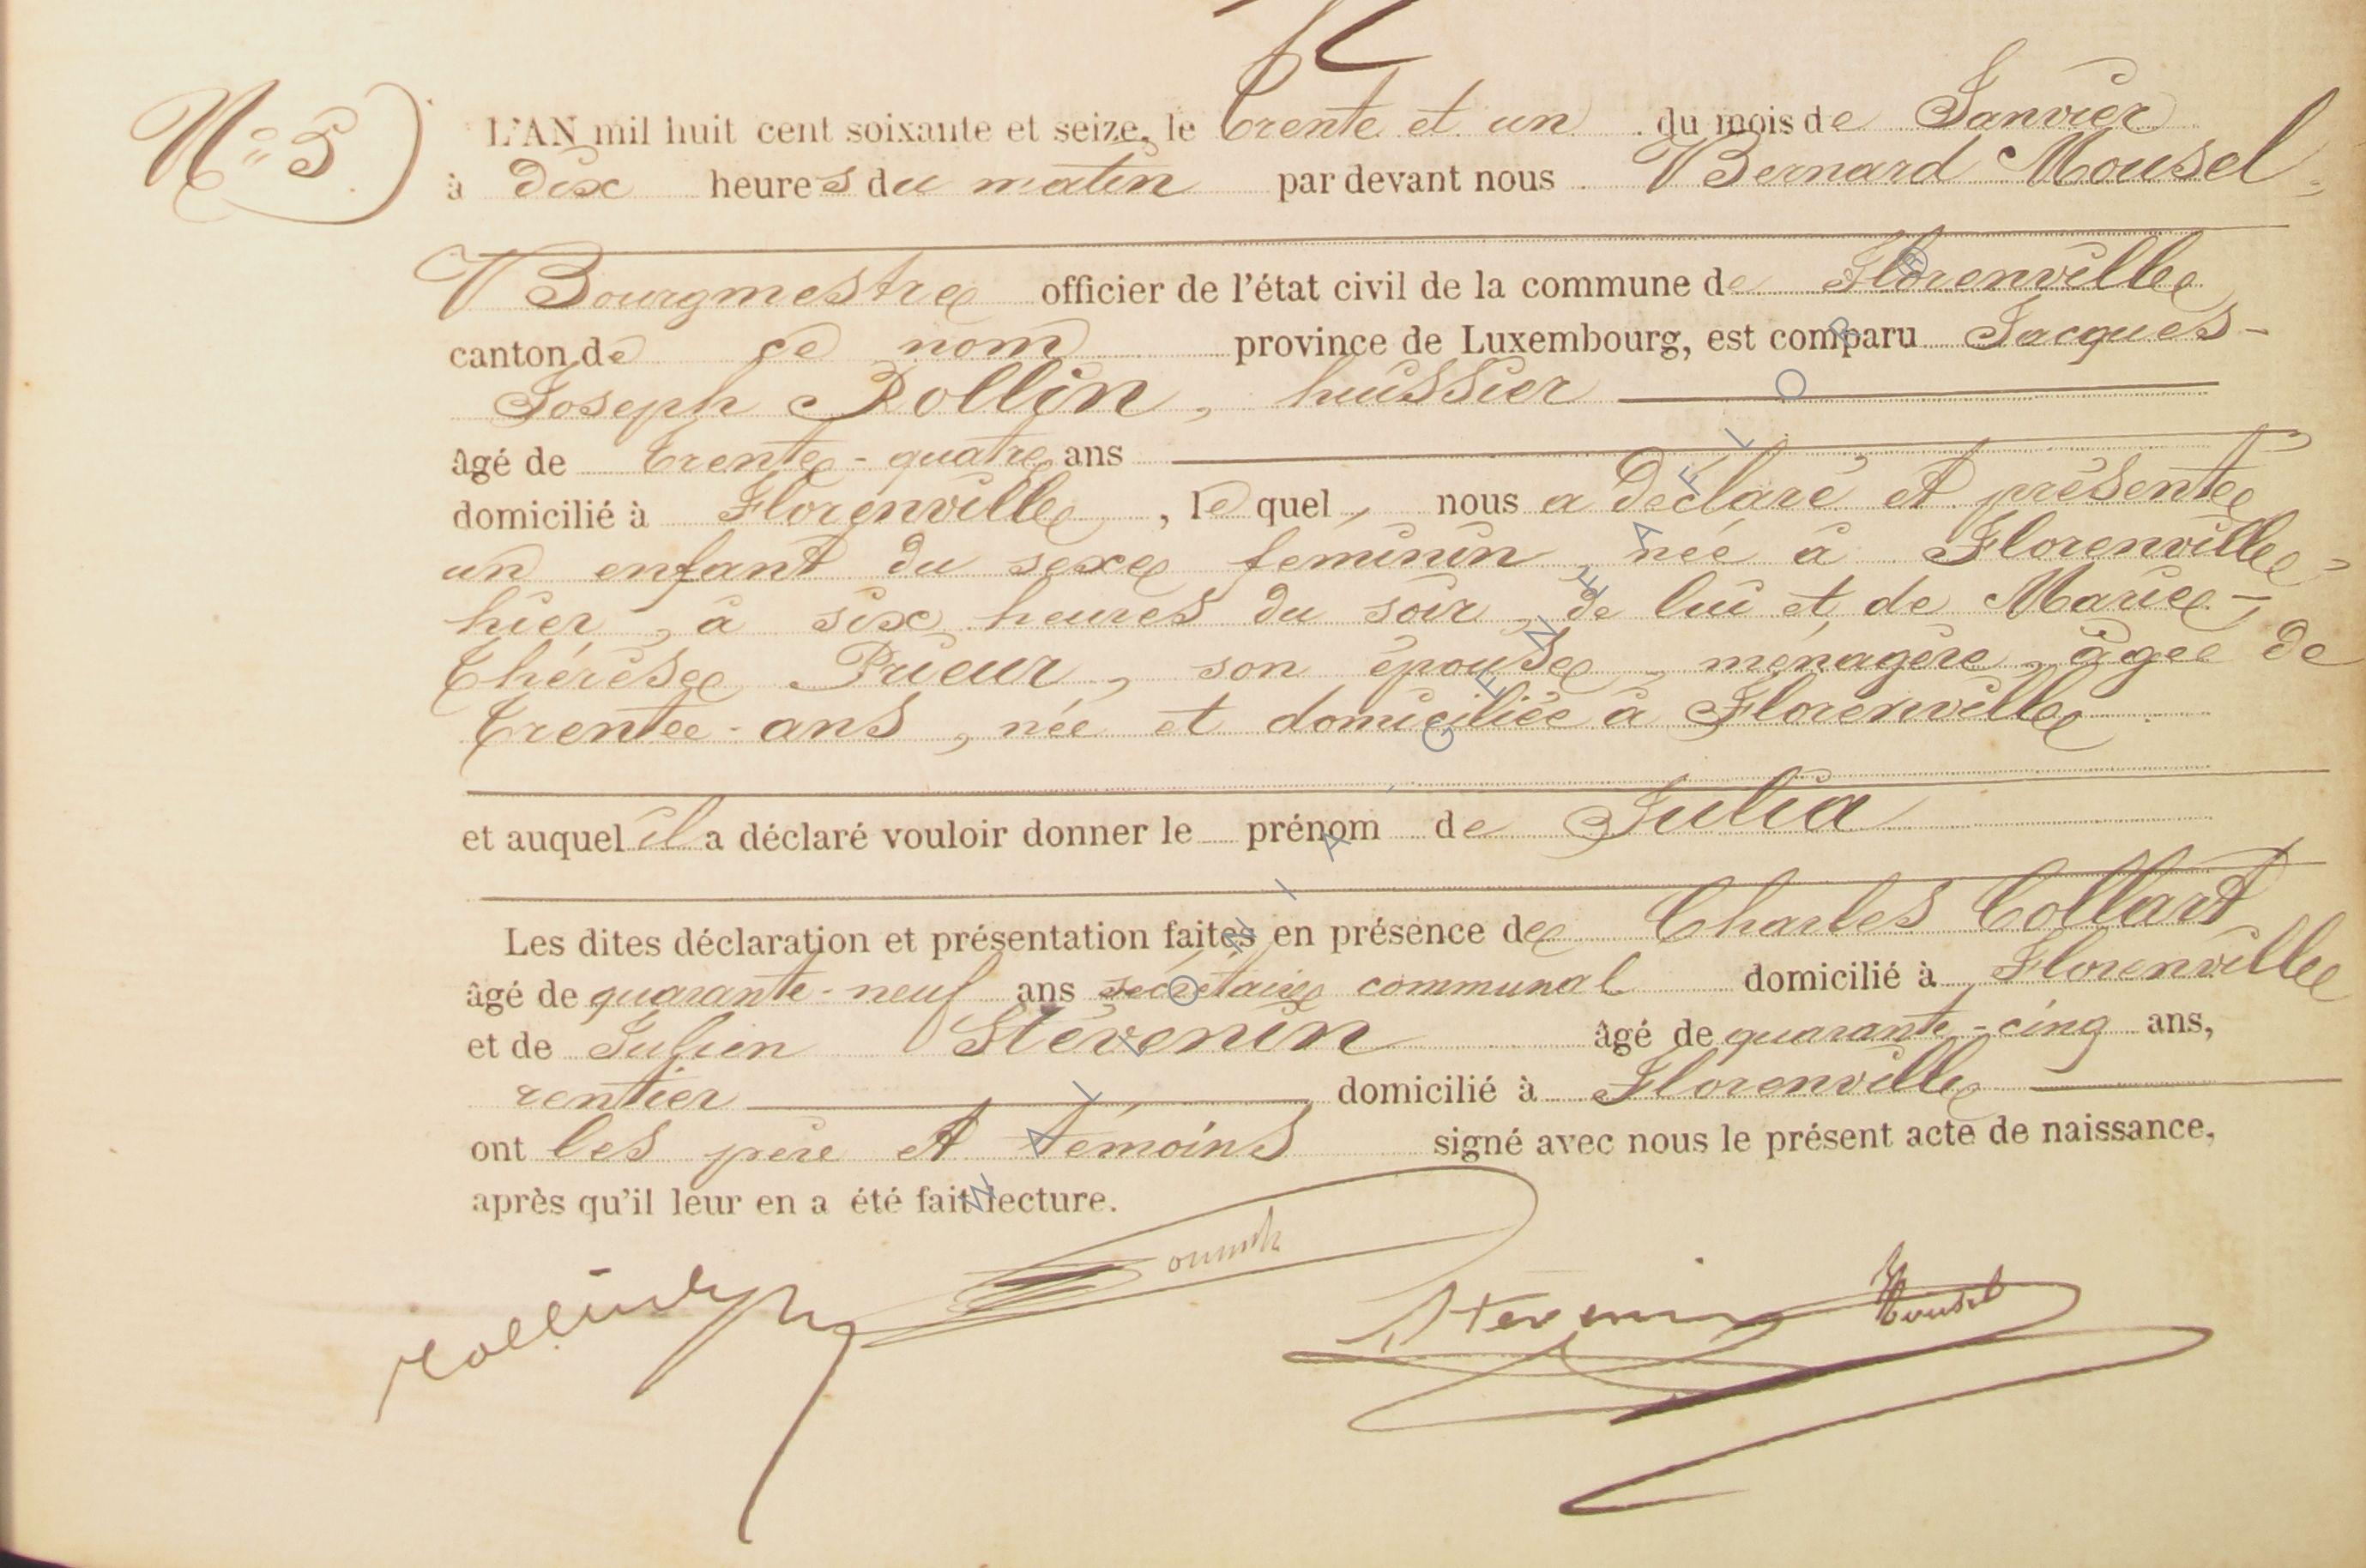 N° 5)
L'AN mil huit cent soixante et seize, le trente et un du mois de Janvier
à dix heures du matin par devant nous Bernard Mousel,
Bourgmestre officier de l'état civil de la commune de Florenville
canton de ce nom province de Luxembourg, est comparu Jacques-
Joseph Rollin, huissier
âgé de trente-quatre ans
domicilié à Florenville, lequel, nous a déclaré et présenté
un enfant du sexe féminin, née à Florenville,
hier, à six heures du soir, de lui et de Marie-
Thérèse Prieur, son épouse, ménagère, âgée de
trente-ans, née et domiciliée à Florenville
et auquel il a déclaré vouloir donner le prénom de Julia
Les dites déclaration et présentation faites en présence de Charles Collart
âgé de quarante-neuf ans secrétaire communal domicilié à Florenville
et de Julien Stévenin âgé de quarante-cinq ans,
rentier domicilié à Florenville
ont les père et témoins signé avec nous le présent acte de naissance,
après qu'il leur en a été fait lecture.
Stevenin Mousel